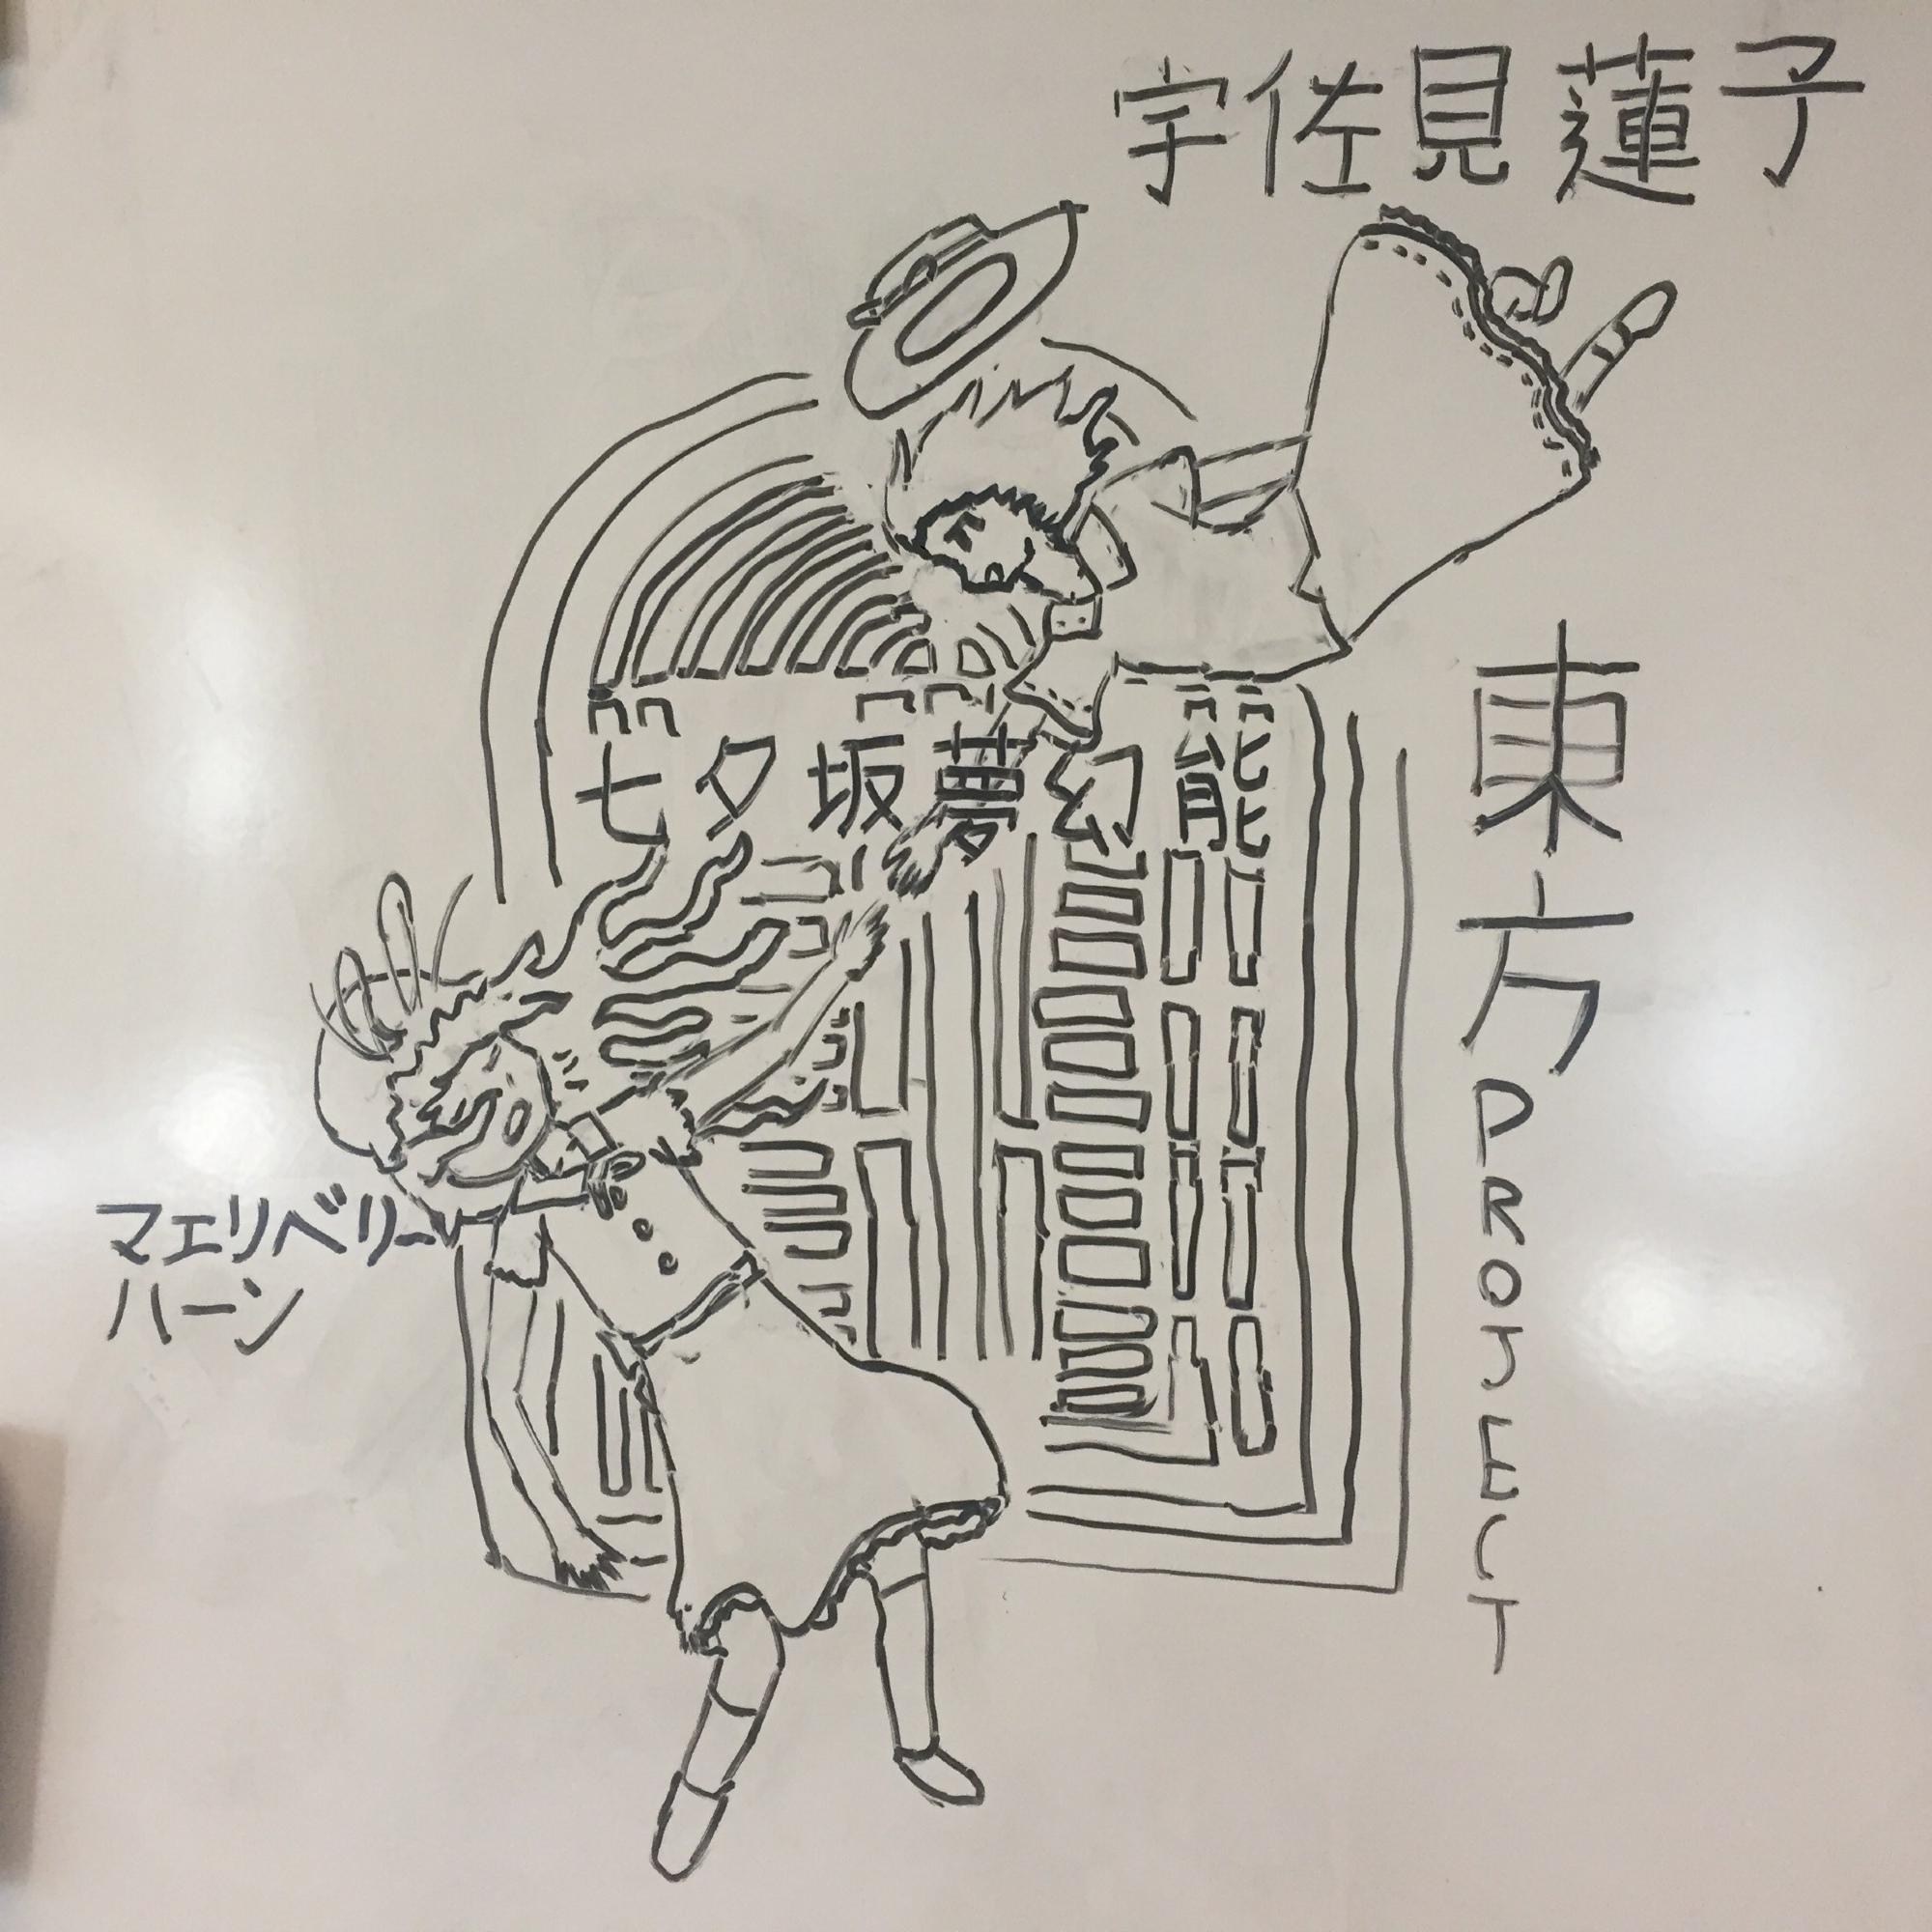 宇佐見蓮子
七夕坂夢幻能
東方PROJECT
マエリベリー
ハーン